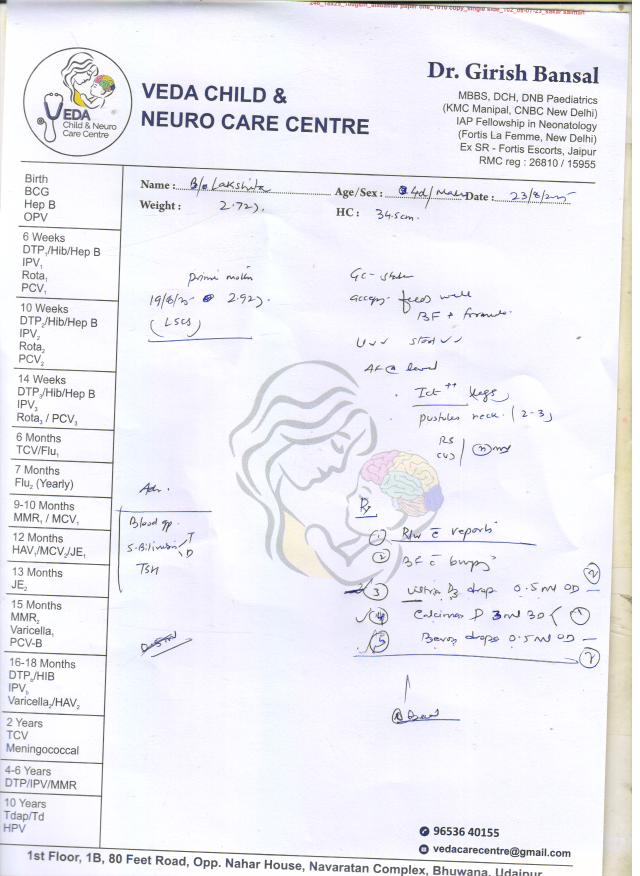 VEDA
Child & Neuro
Care Centre
VEDA CHILD &
NEURO CARE CENTRE
Dr. Girish Bansal
MBBS, DCH, DNB Paediatrics
(KMC Manipal, CNBC New Delhi)
IAP Fellowship in Neonatology
(Fortis La Femme, New Delhi)
Ex SR - Fortis Escorts, Jaipur
RMC reg : 26810 / 15955
Name : B/o Lakshita Age/Sex : 4d/Male Date : 23/8/25
Weight : 2.72 HC : 34.5cm.
Birth
BCG
Hep B
OPV
6 Weeks
DTP₁/Hib/Hep B
IPV₁
Rota₁
PCV₁
10 Weeks
DTP₂/Hib/Hep B
IPV₂
Rota₂
PCV₂
14 Weeks
DTP₃/Hib/Hep B
IPV₃
Rota₃ / PCV₃
6 Months
TCV/Flu₁
7 Months
Flu₂ (Yearly)
9-10 Months
MMR₁ / MCV₁
12 Months
HAV₁/MCV₂/JE₁
13 Months
JE₂
15 Months
MMR₂
Varicella₁
PCV-B
16-18 Months
DTP/HIB
IPV
Varicella₂/HAV₂
2 Years
TCV
Meningococcal
4-6 Years
DTP/IPV/MMR
10 Years
Tdap/Td
HPV
19/8/25 2.92
(LSCS)
feeds well
BF + formula
Ict ++ legs
pustules neck (2-3)
RS
CVS
Adv.
Blood gp.
S. Bilirubin T
D
TSH
Rx
1 R/w c reports
2 BF c burps
3 D3 drop 0.5ml OD
4 Calcimax P 3ml BD
5 drops 0.5ml OD
96536 40155
vedacarecentre@gmail.com
1st Floor, 1B, 80 Feet Road, Opp. Nahar House, Navaratan Complex, Bhuwana, Udaipur